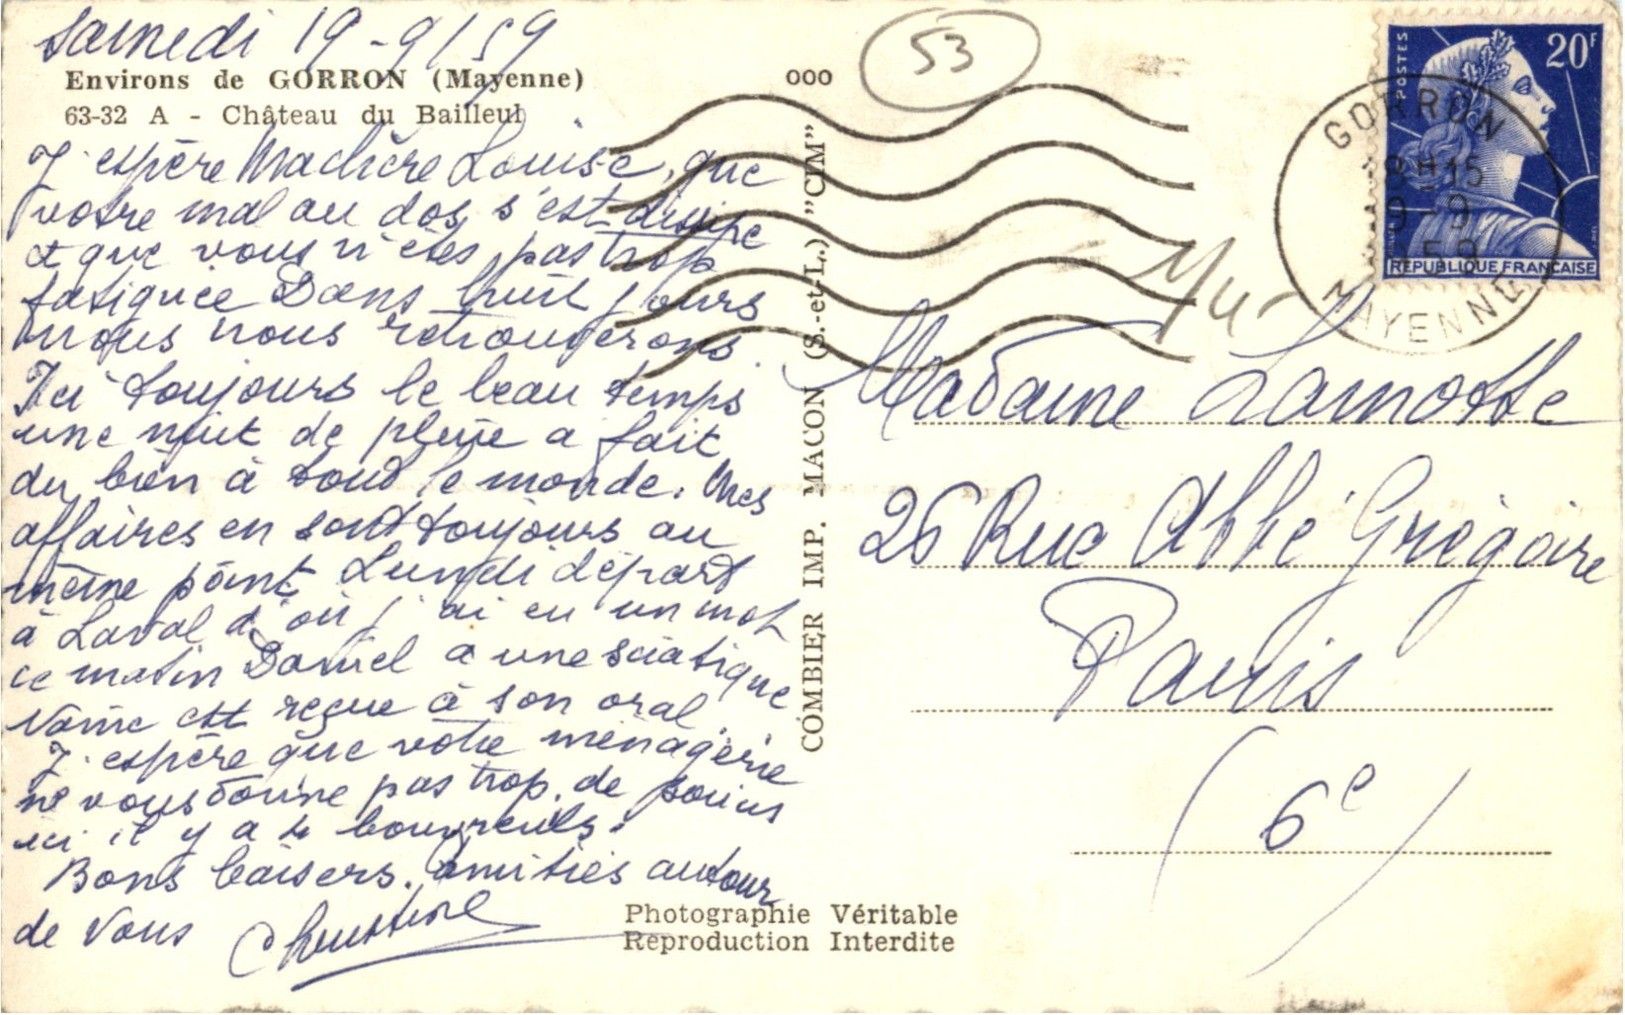 Samedi 19-9/59
Environs de GORRON (Mayenne)
63-32 A - Château du Bailleul
J'espère Ma chère Louise, que
votre mal au dos s'est dissipé
et que vous n'êtes pas trop
fatiguée Dans huit jours
nous nous retrouverons.
Ici toujours le beau temps
une nuit de pluie a fait
du bien à tout le monde. Mes
affaires en sont toujours au
même point Lundi départ
à Laval d'où j'ai eu un mot
ce matin Daniel a une sciatique
est reçue à son oral.
J'espère que votre ménagerie
ne vous donne pas trop de soins
ici il y a 4 bouvreuils.
Bons baisers. Amitiés autour
de vous Christine
ooo
53
COMBIER IMP. MACON (S.-et-L.) "CIM"
POSTES
20F
REPUBLIQUE FRANÇAISE
GORRON
H 15
19-9
1959
MAYENNE
Madame Lamotte
26 Rue Abbé Grégoire
Paris
(6e)
Photographie Véritable
Reproduction Interdite